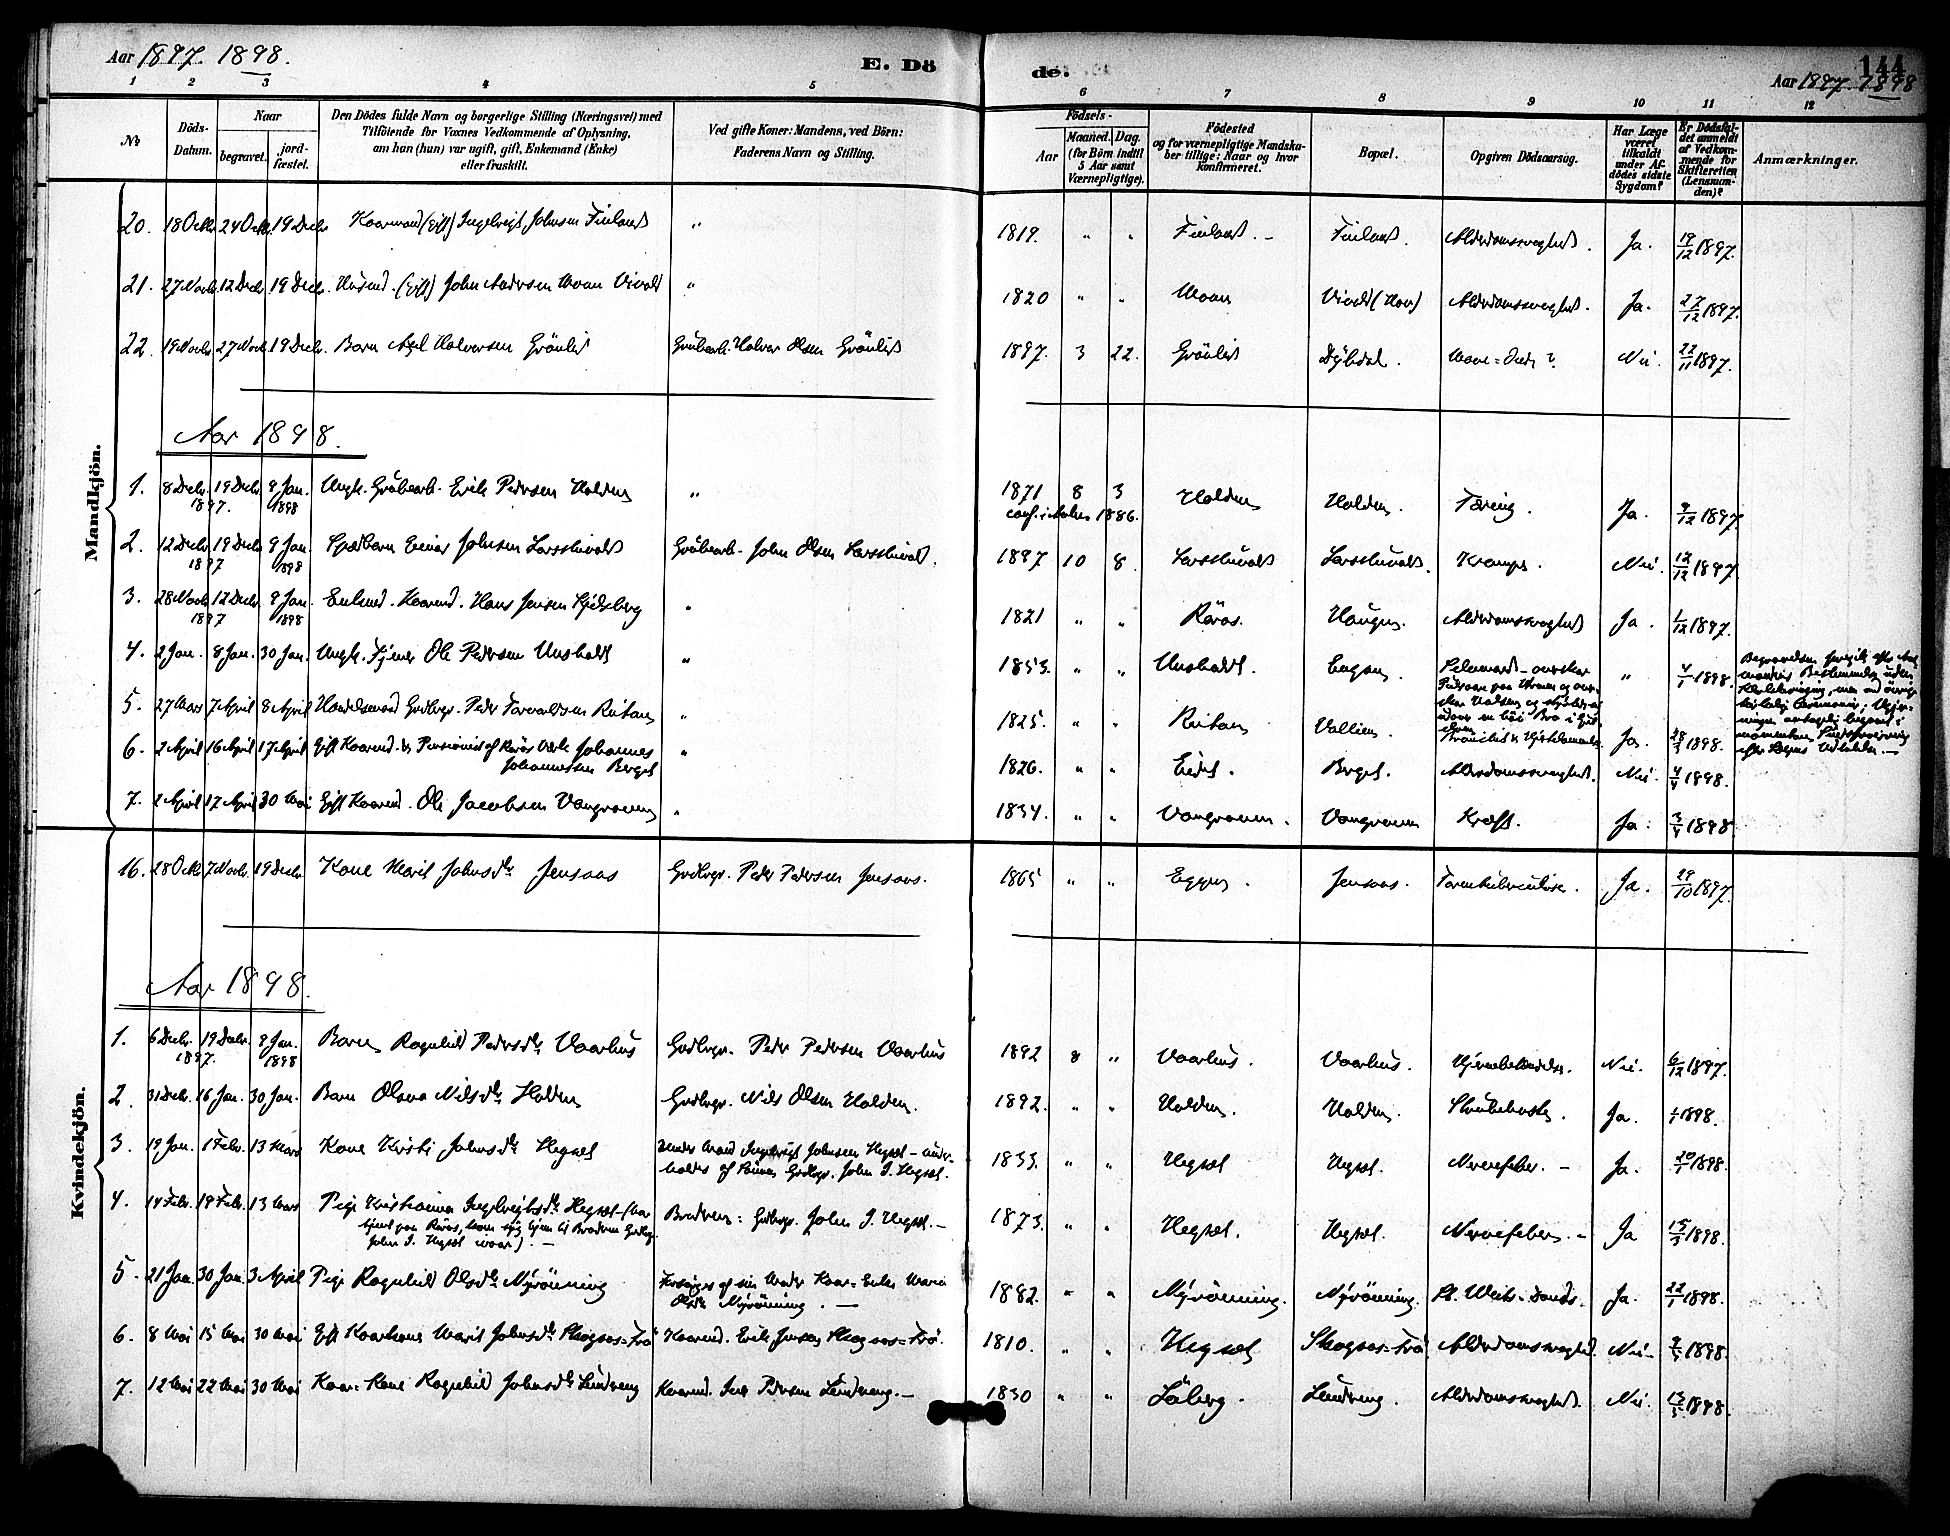 Aar 1897. 1898.
E. Dö
de.
144
Aar 1897. 1898
1 2 3 4 5 6 7 8 9 10 11 12
No
Döds-Datum.
Naar
begravet.
jord-fæstet.
Den Dödes fulde Navn og borgerlige Stilling (Næringsvei) med
Tilföiende for Voxnes Vedkommende af Oplysning,
om han (hun) var ugift, gift, Enkemand (Enke)
eller fraskilt.
Ved gifte Koner: Mandens, ved Börn:
Faderens Navn og Stilling.
Födsels-
Aar
Maaned. Dag.
(for Börn indtil
5 Aar samt
Værnepligtige).
Födested
og for værnepligtige Mandska-
ber tillige: Naar og hvor
konfirmeret.
Bopæl.
Opgiven Dödsaarsag.
Har Læge
været
tilkaldt
under Af-
dödes sidste
Sygdom?
Er Dödsfal-
det anmeldt
af Vedkom-
mende for
Skifteretten
(Lensman-
den)?
Anmærkninger.
Mandkjön.
20. 18 Octbr. 24 Octbr. 19 Decbr. Kaarmand (Gift) Ingebrigt Johnsen Finland " 1819. " " Finland. - Finland. Alderdomssvaghed. Ja. 19/12 1897.
21. 27 Novbr. 12 Decbr. 19 Decbr. (Gift) John Andersen Moan " 1820 " " Moan Alderdomssvaghed. Ja. 27/12 1897.
22. 19 Novbr. 27 Novbr. 19 Decbr. Barn Axel Halvorsen Grönlid Grubearb. Halvor Olsen Grönlid 1897. 3 22. Grönlid Dybdal. Nei. 22/11 1897.
Aar 1898.
1. 8 Decbr. 1897. 19 Decbr. 9 Jan. 1898 Ungk. Grubearb. Erik Pedersen Holden " 1871 8 3 Holden Holden. Tæring. Ja. 9/12 1897
conf. i Aalen 1886.
2. 12 Decbr. 1897 19 Decbr. 9 Jan. 1898 Spædbarn Einar Johnsen Grubearb. John Olsen 1897 10 8. Krampe. Nei. 12/12 1897
3. 28 Novbr. 1897 12 Decbr. 9 Jan. 1898 Enkemd. Kaarmd. Hans Jensen " 1821 " " Röros. Haugen. Alderdomssvaghed Ja. 1/12 1897.
4. 2 Jan. 8 Jan. 30 Jan. Ungk. Tjener Ole Pedersen Unsholdt " 1853. " " Unsholdt. Engan. " 4/1 1898.
5. 27 Mars 7 April 8 April Handelsmand Gaardbrgr. Peder Torvaldsen Reitan " 1825. " " Reitan Vollien. Ja. 28/3 1898.
6. 2 April 16 April 17 April Gift Kaarmd. & Pensionist af Röros Værk Johannes
Johannessen Berget " 1826. " " Eidet. Berget. Alderdomssvaghed. Nei. 4/4 1898.
7. 2 April 17 April 30 Mai Gift Kaarmd. Ole Jacobsen Vangraven " 1834. " " Vangraven. Vangraven Kræft. Ja. 3/4 1898
Kvindekjön.
16. 28 Octbr. 7 Novbr. 19 Decbr. Kone Marit Johnsdtr. Jensaas Grdbrgr. Peder Pedersen Jensaas. 1865 " " Eggen. Jensaas. Tarmtuberculose. Ja. 29/10 1897.
Aar 1898.
1. 6 Decbr. 1897. 19 Decbr. 9 Jan. 1898 Barn Ragnhild Pedersdtr. Vaarhus Grdbrgr. Peder Pedersen Vaarhus 1892 8 " Vaarhus. Vaarhus. Nei. 6/12 1897.
2. 31 Decbr. 16 Jan. 30 Jan. Barn Olava Nilsdtr. Holden Grdbrgr. Nils Olsen Holden. 1892. " " Holden. Holden. Strubehoste. Ja. 1/1 1898.
3 19 Jan. 1 Febr. 13 Mars Kone Kirsti Johnsdtr. Hegset Ingebrigt Johnsen Hegset - under-
holdes af Sönnen Grdbrgr. John I. Hegset. 1833. " " Hegset Hegset. Nervefeber. - Ja. 20/1 1898.
4. 14 Febr. 19 Febr. 13 Mars Pige Kristianna Ingebrigtsdtr. Hegset - (har
tjent paa Röros, kom syg hjem til Broderen Grdbrgr.
John I. Hegset ivaar). - Broderen: Grdbrgr. John I. Hegset. - 1873. " " Hegset. Hegset. Nervefeber. - Ja 15/3 1898.
5. 21 Jan. 30 Jan. 3 April Pige Ragnhild Olsdtr. Nyrönning Forsörges af sin Moder Kaar-Enke Maria
Olsdtr. Nyrönning. - 1882. " " Nyrönning. Nyrönning. St. Veits-Dands. Ja. 22/1 1898.
6. 8 Mai 15 Mai 30 Mai Gift Kaarkone Marit Johnsdtr. Skogaas-Trö Kaarmd. Erik Jensen Skogaas-Trö. 1810. " " Hegset Skogaas-Trö Alderdomssvaghed. Nei - 9/5 1898.
7. 12 Mai 22 Mai 30 Mai Kaar-Kone Ragnhild Johnsdtr. Lundveng Kaarmd. Pedersen Lundveng. - 1830 " " Löberg. Lundveng. Alderdomssvaghed. Nei. 13/5 1898.